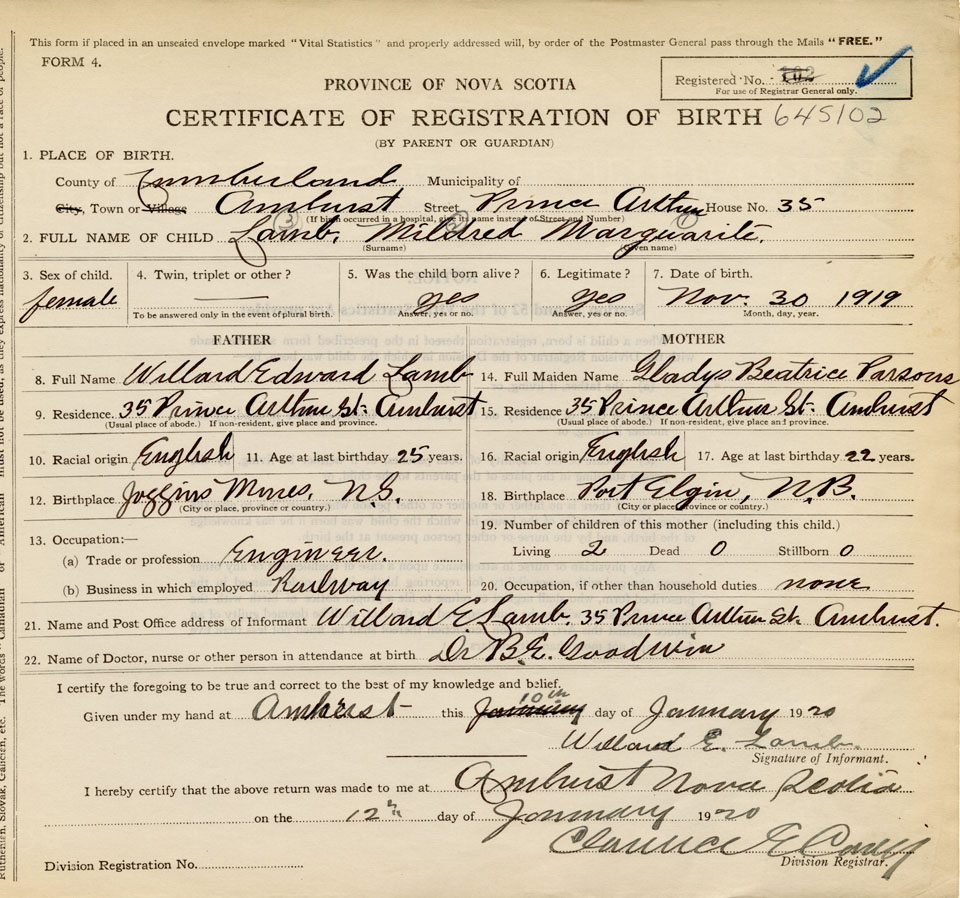 This form if placed in an unsealed envelope marked "Vital Statistics" and properly addressed will, by order of the Postmaster General pass through the Mails "FREE."
FORM 4.
Registered No. 102
For use of Registrar General only.
PROVINCE OF NOVA SCOTIA
CERTIFICATE OF REGISTRATION OF BIRTH 645102
(BY PARENT OR GUARDIAN)
1. PLACE OF BIRTH.
County of Cumberland Municipality of
City, Town or Village Amhurst Street Prince Arthur House No. 35
(If birth occurred in a hospital, give its name instead of Street and Number)
2. FULL NAME OF CHILD Lamb, Mildred Marguarite.
(Surname) (Given name)
3. Sex of child. 4. Twin, triplet or other? 5. Was the child born alive? 6. Legitimate? 7. Date of birth.
female yes yes Nov. 30 1919
To be answered only in the event of plural birth. Answer, yes or no. Answer, yes or no. Month, day, year.
FATHER MOTHER
8. Full Name Willard Edward Lamb 14. Full Maiden Name Gladys Beatrice Parsons
9. Residence. 35 Prince Arthur St. Amhurst 15. Residence 35 Prince Arthur St. Amhurst
(Usual place of abode.) If non-resident, give place and province. (Usual place of abode.) If non-resident, give place and province.
10. Racial origin English 11. Age at last birthday 25 years. 16. Racial origin English 17. Age at last birthday 22 years.
12. Birthplace Joggins Mines, N.S. 18. Birthplace Port Elgin, N.B.
(City or place, province or country.) (City or place, province or country.)
13. Occupation:— 19. Number of children of this mother (including this child.)
(a) Trade or profession Engineer. Living 2 Dead 0 Stillborn 0
(b) Business in which employed Railway 20. Occupation, if other than household duties none
21. Name and Post Office address of Informant Willard E. Lamb. 35 Prince Arthur St. Amhurst.
22. Name of Doctor, nurse or other person in attendance at birth Dr B.E. Goodwin
I certify the foregoing to be true and correct to the best of my knowledge and belief.
10th
Given under my hand at Amherst this January day of January 1920
Willard E. Lamb.
Signature of Informant.
I hereby certify that the above return was made to me at Amhurst Nova Scotia
on the 12th day of January 1920
Clarence E
Division Registration No. Division Registrar.